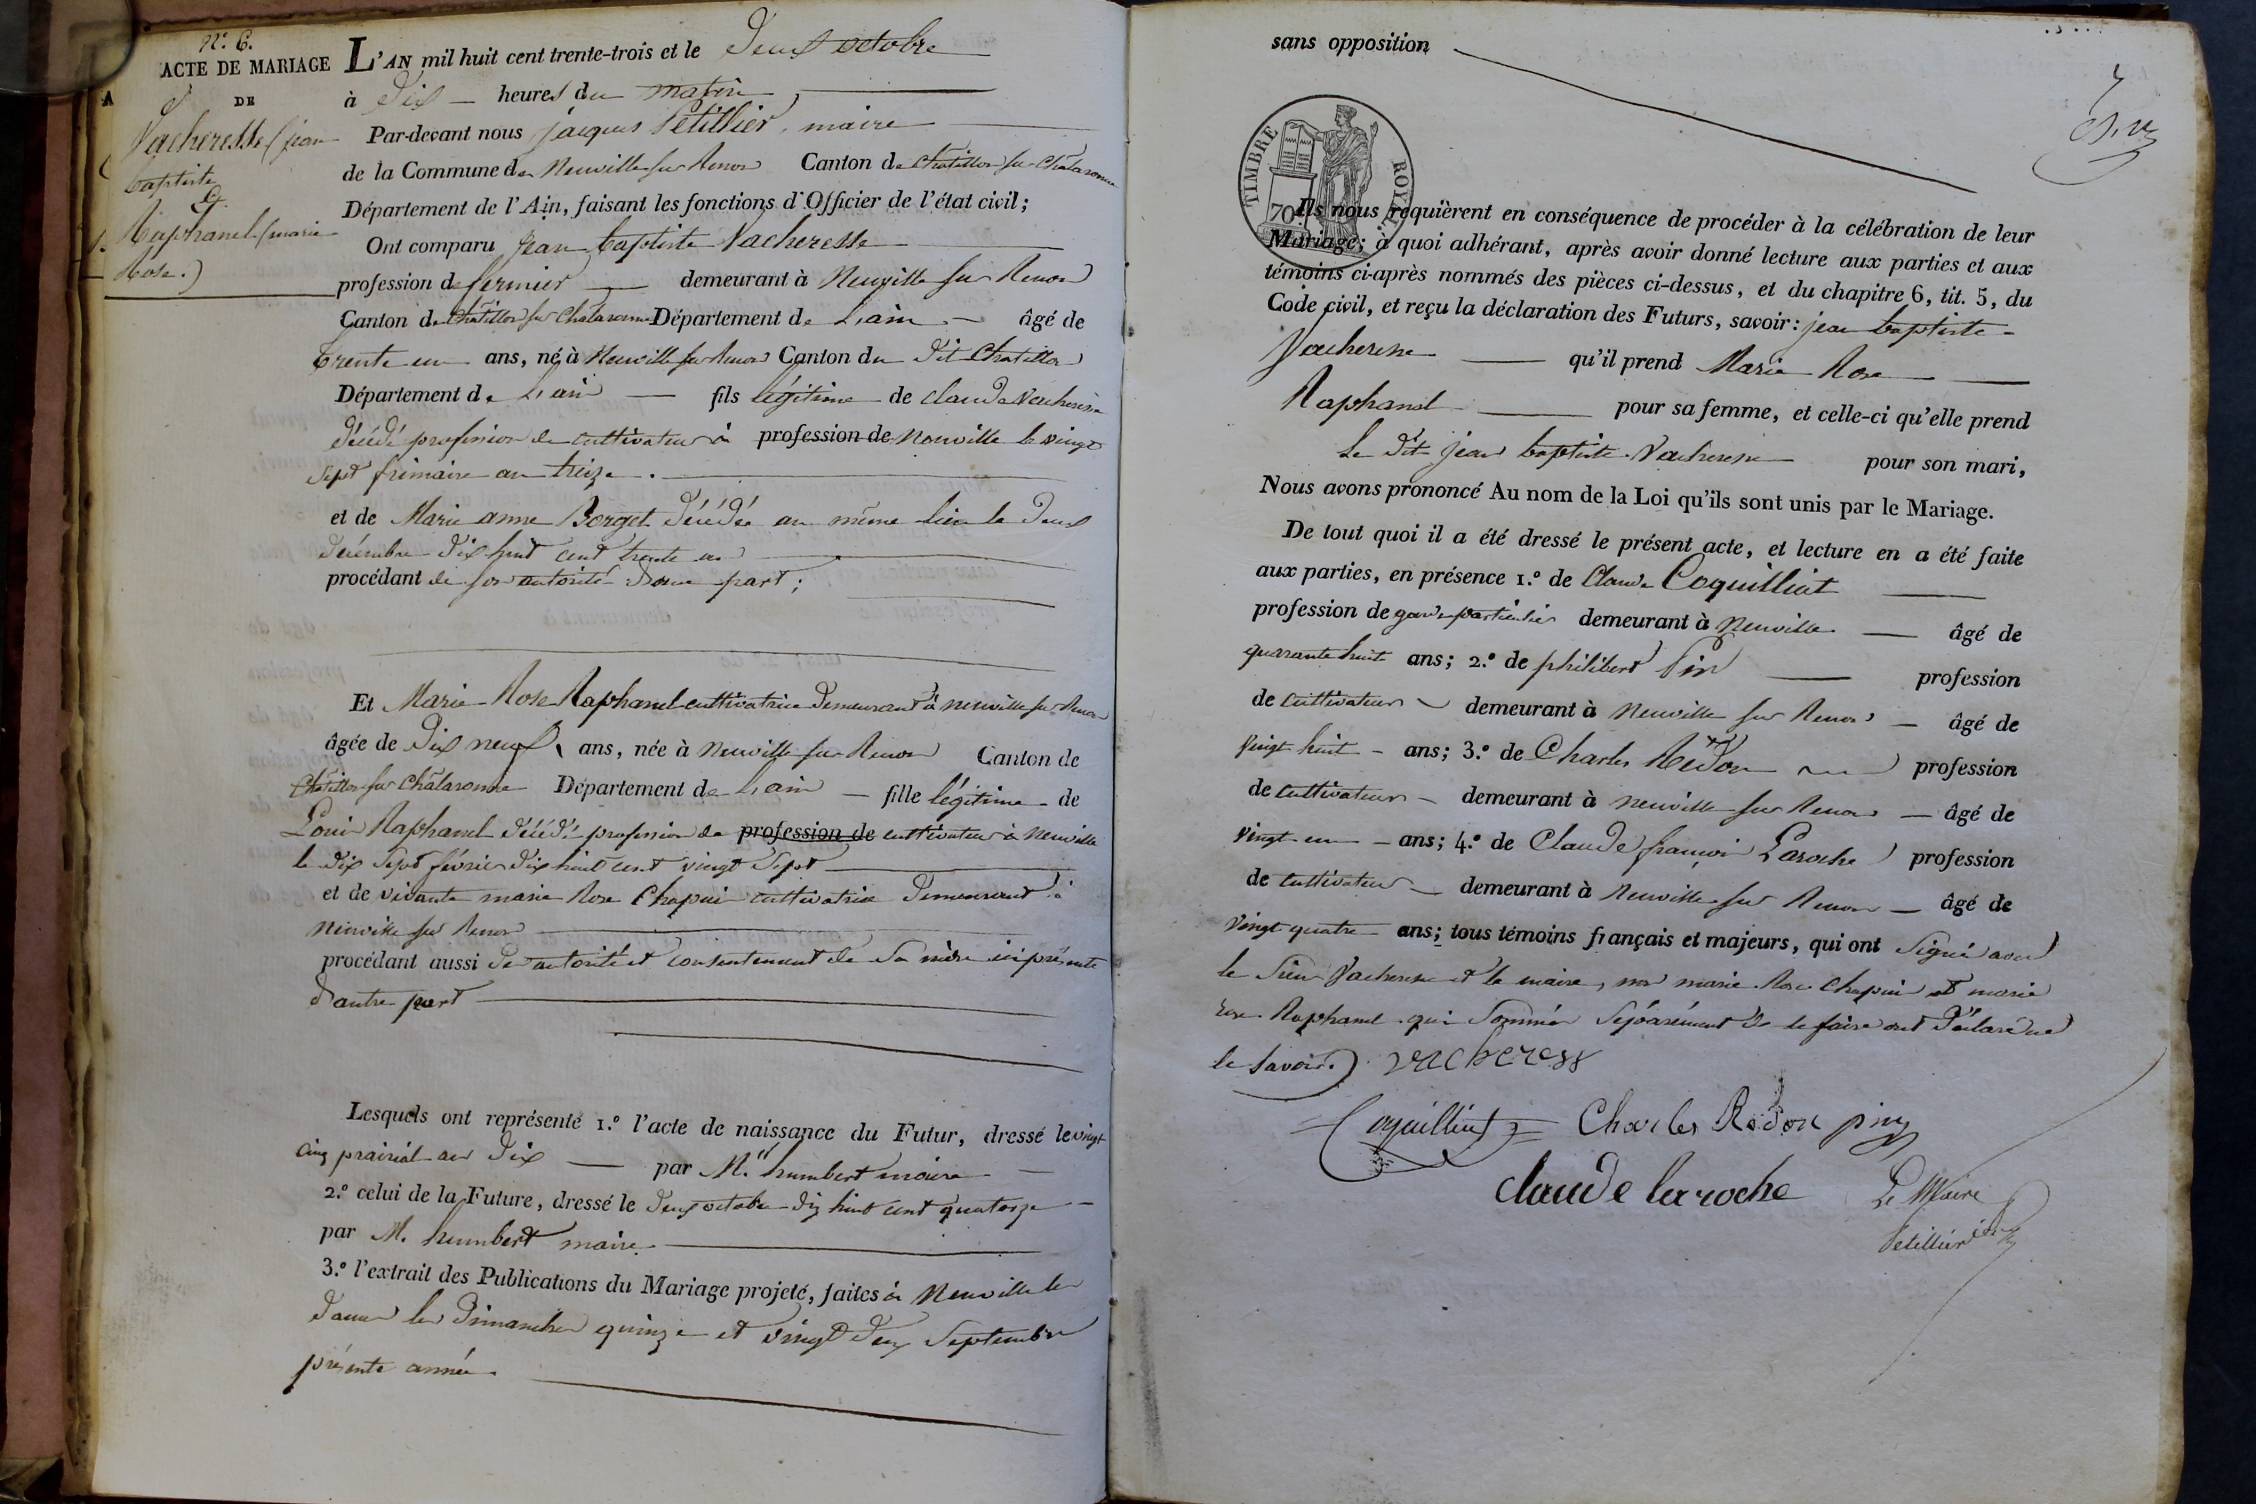 N.º 6.
ACTE DE MARIAGE
DE
Vacheresse (jean
baptiste
et
Raphanel (marie
Rose.)
L'AN mil huit cent trente-trois et le Deux octobre
à Dix heures du matin
Par-devant nous jacques Petillier, maire
de la Commune de Neuville sur Renon Canton de Chatillon sur Chalaronne
Département de l'Ain, faisant les fonctions d'Officier de l'état civil;
Ont comparu Jean baptiste Vacheresse
profession de fermier demeurant à Neuville sur Renon
Canton de Chatillon sur Chalaronne Département de L'ain âgé de
trente un ans, né à Neuville sur Renon Canton du dit Chatillon
Département de L'ain fils légitime de claude Vacheresse
décédé profession de cultivateur à profession de Neuville le vingt
sept frimaire an treize.
et de Marie anne Borget décédée au même lieu le deux
décembre dix huit cent trente un
procédant de son autorité d'une part;
Et Marie Rose Raphanel cultivatrice demeurant à neuville sur Renon
âgée de Dix neuf ans, née à Neuville sur Renon Canton de
Châtillon sur Châlaronne Département de L'ain fille légitime de
Louis Raphanel décédé profession de profession de cultivateur à Neuville
le dix sept février dix huit cent vingt sept
et de vivante marie Rose Chapuis cultivatrice demeurant à
Neuville sur Renon
procédant aussi de autorité et consentement de sa mère ici présente
d'autre part
Lesquels ont représenté 1.º l'acte de naissance du Futur, dressé le vingt
cinq prairial an dix par M. humbert maire
2.º celui de la Future, dressé le deux octobre dix huit cent quatorze
par M. humbert maire
3.º l'extrait des Publications du Mariage projeté, faites à Neuville les
Dames les Dimanches quinze et vingt deux Septembre
présente année.
sans opposition
TIMBRE ROYAL
70
Ils nous requièrent en conséquence de procéder à la célébration de leur
Mariage; à quoi adhérant, après avoir donné lecture aux parties et aux
témoins ci-après nommés des pièces ci-dessus, et du chapitre 6, tit. 5, du
Code civil, et reçu la déclaration des Futurs, savoir: jean baptiste
Vacheresse qu'il prend Marie Rose
Raphanel pour sa femme, et celle-ci qu'elle prend
Le dit jean baptiste Vacheresse pour son mari,
Nous avons prononcé Au nom de la Loi qu'ils sont unis par le Mariage.
De tout quoi il a été dressé le présent acte, et lecture en a été faite
aux parties, en présence 1.º de Claude Coquilliat
profession de garde particulier demeurant à Neuville âgé de
quarante huit ans; 2.º de philibert Pin profession
de cultivateur demeurant à Neuville sur Renon âgé de
vingt huit ans; 3.º de Charles Rédon profession
de cultivateur demeurant à neuville sur Renon âgé de
vingt un ans; 4.º de Claude françois Laroche profession
de cultivateur demeurant à Neuville sur Renon âgé de
vingt quatre ans; tous témoins français et majeurs, qui ont signé avec
le sieur Vacheresse et le maire, non marie Rose Chapuis et marie
rose Raphanel qui sommés séparément de le faire ont déclaré ne
le savoir. vacheress
Coquilliat Charles Rédon pin
claude laroche Le Maire
Petillier